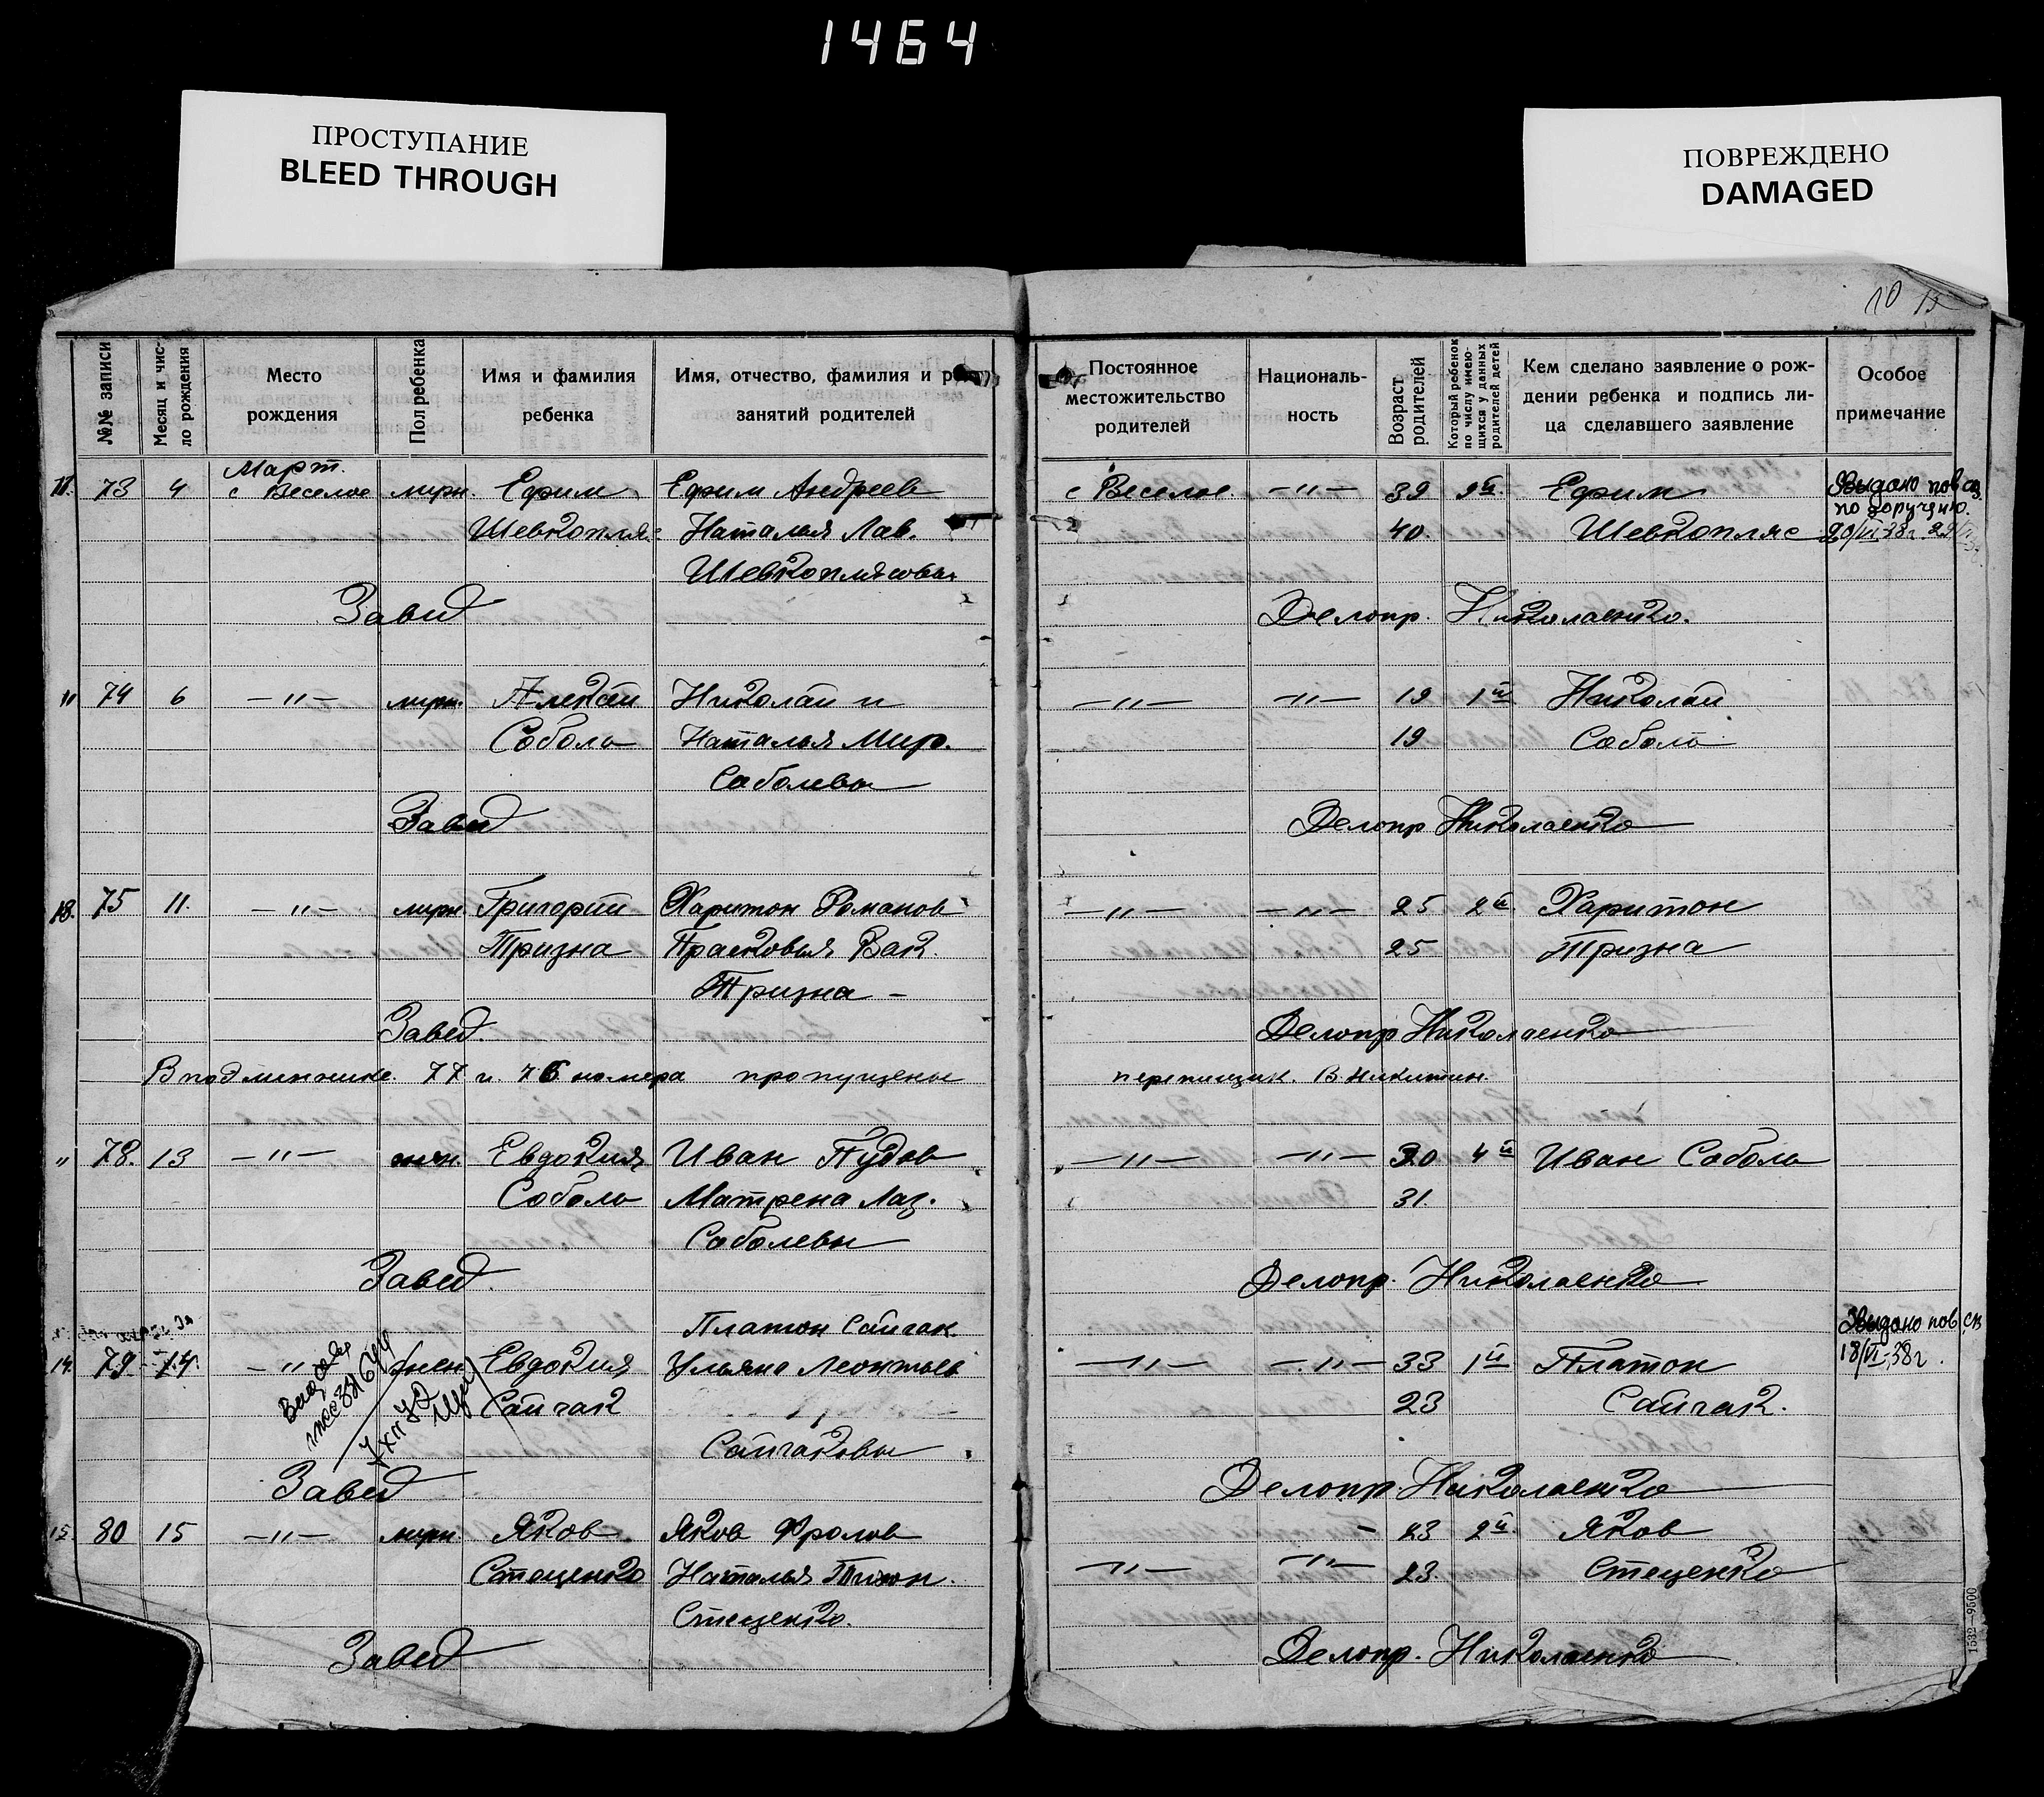 1464
ПРОСТУПАНИЕ
BLEED THROUGH
ПОВРЕЖДЕНО
DAMAGED
10 13
№№ записи
Месяц и число рождения
Место рождения
Пол ребенка
Имя и фамилия ребенка
Имя, отчество, фамилия и р
занятий родителей
Постоянное местожительство родителей
Националь-
ность
Возраст родителей
Который ребенок по числу имею-
щихся у данных родителей детей
Кем сделано заявление о рож-
дении ребенка и подпись ли-
ца сделавшего заявление
Особое примечание
Март.
73 4 с Веселое мужч. Ефим Ефим Андреев с Веселое — " — 39 9й Ефим Выдано пов св
по поручению.
Шевкопляс Наталья Лав. 40. Шевкопляс 20/VI-38г.
Шевкоплясовы
Завед Делопр. Николаенко.
" 74 6 — " — мужч. Алексей Николай и — " — — " — 19 1й Николай
Соболь Наталья Мир. 19 Соболь
Соболевы
Завед Делопр Николаенко
18. 75 11. — " — мужч. Григорий Харитон Романов — " — — " — 25 2й Харитон
Тризна Прасковья Вак. 25 Тризна
Тризна —
Завед. Делопр Николаенко
В подлиннике 77 и 76 номера пропущены переписчик. В. Никитин.
" 78. 13 — " — жен. Евдокия Иван Пудов — " — — " — 30 4й Иван Соболь
Соболь Матрена Лаз. 31.
Соболевы
Завед. Делопр. Николаенко
Платон Сайгак. Выдано пов св
14. 79 14. — " — жен Евдокия Ульяна Леонтьев — " — — " — 33 1й Платон 18/VI-38г.
Сайгак 23 Сайгак.
Сайгаковы
Завед Делопр. Николаенко
15. 80 15 — " — мужч. Яков Яков Фролов - 23 2й Яков
Стеценко Наталья Тихон. — " — — " — 23 Стеценко
Стеценко.
Завед Делопр. Николаенко
1532—9500